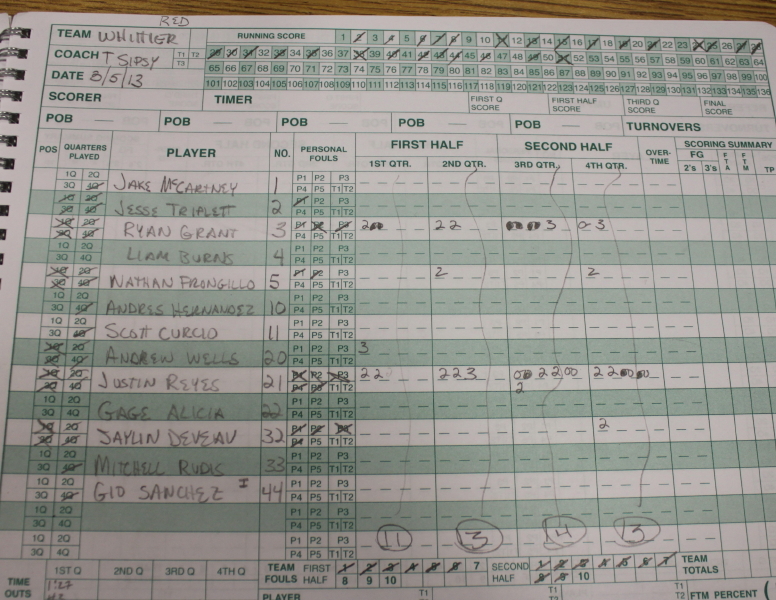 RED
TEAM WHITTIER RUNNING SCORE 1 2 3 4 5 6 7 8 9 10 11 12 13 14 15 16 17 18 19 20 21 22 23 24 25 26 27 28
COACH T SIPSY T1 T2 T3 29 30 31 32 33 34 35 36 37 38 39 40 41 42 43 44 45 46 47 48 49 50 51 52 53 54 55 56 57 58 59 60 61 62 63 64
65 66 67 68 69 70 71 72 73 74 75 76 77 78 79 80 81 82 83 84 85 86 87 88 89 90 91 92 93 94 95 96 97 98 99 100
DATE 8/5/13 101 102 103 104 105 106 107 108 109 110 111 112 113 114 115 116 117 118 119 120 121 122 123 124 125 126 127 128 129 130 131 132 133 134 135 136
SCORER TIMER FIRST Q SCORE FIRST HALF SCORE THIRD Q SCORE FINAL SCORE
POB — POB — POB — POB — POB — TURNOVERS
POS QUARTERS PLAYED PLAYER NO. PERSONAL FOULS FIRST HALF SECOND HALF OVER-TIME SCORING SUMMARY
1ST QTR. 2ND QTR. 3RD QTR. 4TH QTR. FG 2's 3's FTA FTM TP
1Q 2Q 3Q 4Q JAKE MCCARTNEY 1 P1 P2 P3 P4 P5 T1 T2
JESSE TRIPLETT 2 P1 P2 P3 P4 P5 T1 T2
RYAN GRANT 3 P1 P2 P3 P4 P5 T1 T2 2 2 2 3 3
1Q 2Q 3Q 4Q LIAM BURNS 4 P1 P2 P3 P4 P5 T1 T2
1Q 2Q 3Q 4Q NATHAN FRONGILLO 5 P1 P2 P3 P4 P5 T1 T2 2 2
1Q 2Q 3Q 4Q ANDRES HERNANDEZ 10 P1 P2 P3 P4 P5 T1 T2
1Q 2Q 3Q 4Q SCOTT CURCIO 11 P1 P2 P3 P4 P5 T1 T2
1Q 2Q 3Q 4Q ANDREW WELLS 20 P1 P2 P3 P4 P5 T1 T2 3
1Q 2Q 3Q 4Q JUSTIN REYES 21 P1 P2 P3 P4 P5 T1 T2 2 2 2 2 3 2 2 2 2
2
1Q 2Q 3Q 4Q GAGE ALICIA 22 P1 P2 P3 P4 P5 T1 T2
1Q 2Q 3Q 4Q JAYLIN DEVEAU 32 P1 P2 P3 P4 P5 T1 T2 2
1Q 2Q 3Q 4Q MITCHELL RUDIS 33 P1 P2 P3 P4 P5 T1 T2
1Q 2Q 3Q 4Q GIO SANCHEZ I 44 P1 P2 P3 P4 P5 T1 T2
1Q 2Q 3Q 4Q P1 P2 P3 P4 P5 T1 T2
1Q 2Q 3Q 4Q P1 P2 P3 P4 P5 T1 T2 11 13 14 13
TIME OUTS 1ST Q 2ND Q 3RD Q 4TH Q TEAM FOULS FIRST HALF 1 2 3 4 5 6 7 8 9 10 SECOND HALF 1 2 3 4 5 6 7 8 9 10 TEAM TOTALS
1:27
PLAYER T1 T1 T1 T2 FTM PERCENT (